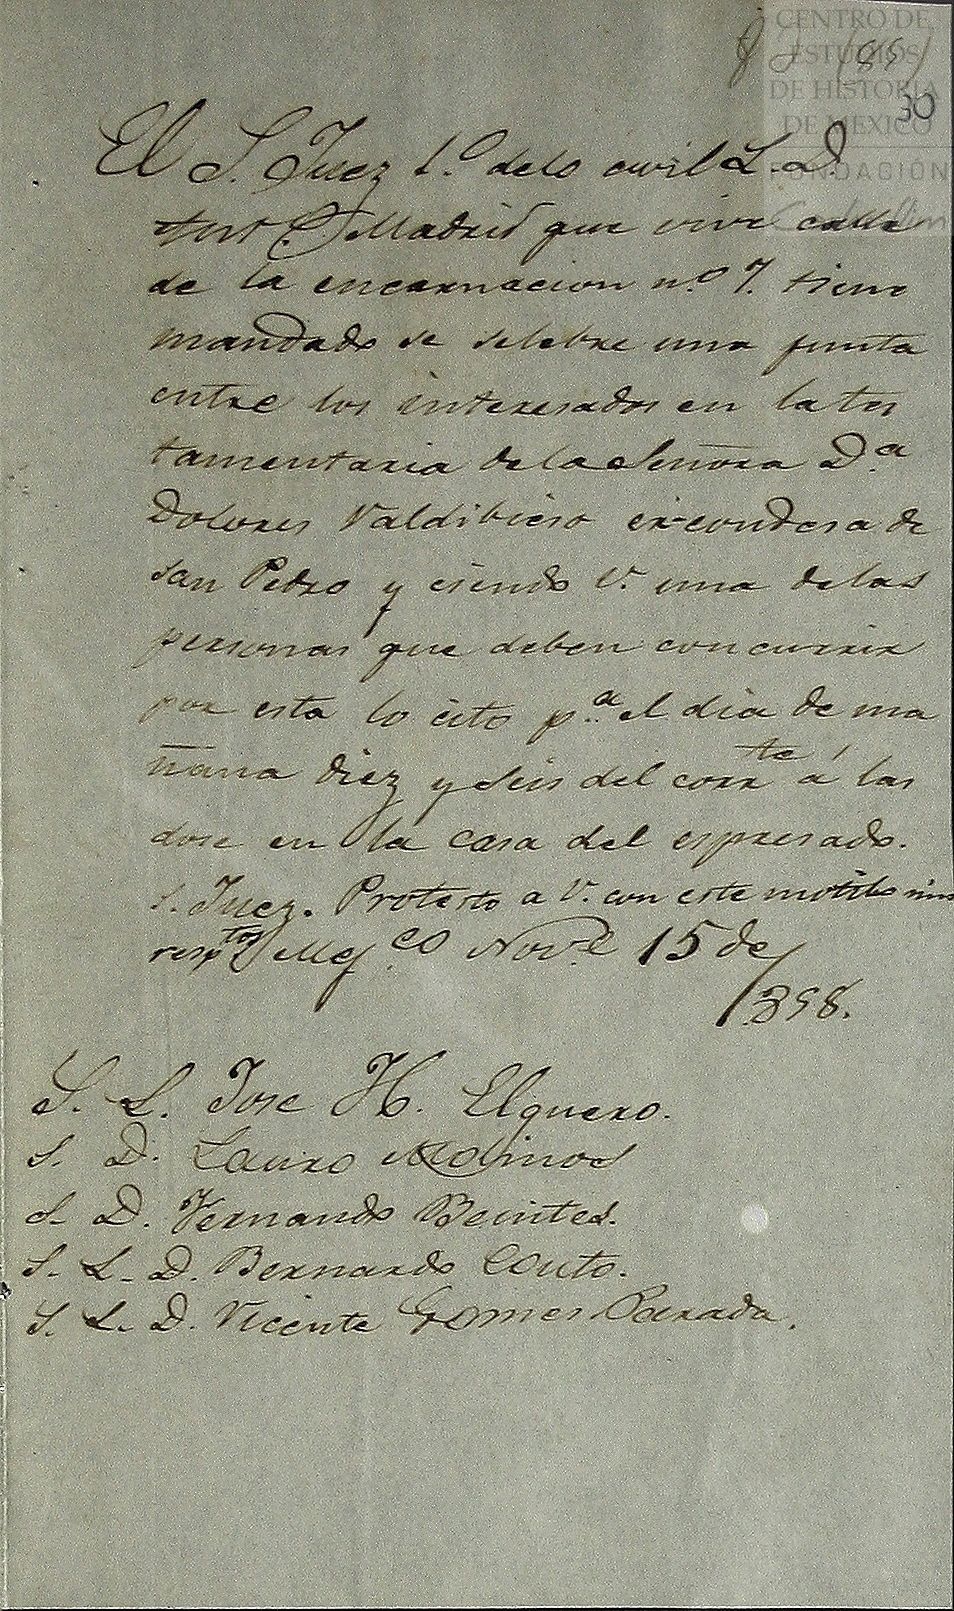 CENTRO DE
ESTUDIOS
DE HISTORIA
DE MEXICO
FUNDACION
30
El S. Juez 1.º delo civil L. D.
que vive calle
de la encarnacion n.º 7. tiene
mandado se selebre una junta
entre los interesados en la tes
tamentaria de la Señora D.ª
Dolores Valdibieso ex-condesa de
San Pedro y ciendo V. una de las
personas que deben concurrir
por esta lo cito p.ª el dia de ma
ñana diez y seis del corr.te á las
dose en la casa del espresado.
S. Juez. Protesto a V. con este motibo mis
resp.tos Mej.co Nov.e 15 de
1858.
S. L. Jose H. Elguero.
S. D. Lauro
S. D. Fernando Benites.
S. L. D. Bernardo Couto.
S. L. D. Vicente Gomes Parada.